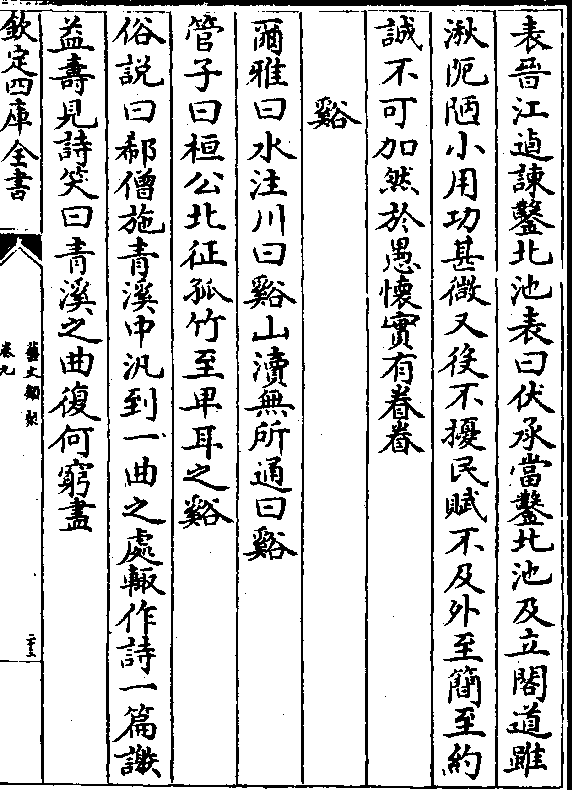 表晉江逌諫鑿北池表曰伏承當鑿北池及立閣道雖
湫阨陋小用功甚微又役不擾民賦不及外至簡至約
誠不可加然於愚懷實有眷眷
谿
爾雅曰水注川曰谿山瀆無所通曰谿
管子曰桓公北征孤竹至卑耳之谿
俗說曰郗僧施青溪中汎到一曲之處輙作詩一篇謝
益壽見詩笑曰青溪之曲復何窮盡
欽定四庫全書
藝文類聚
卷九
二十三